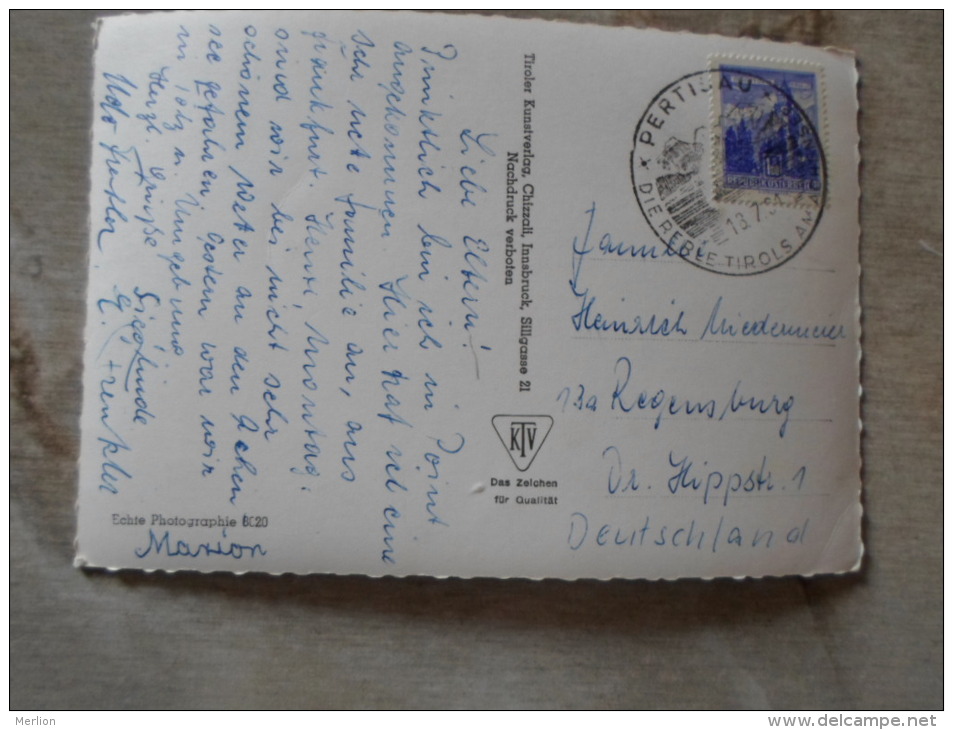 Liebe Eltern!
Pünktlich bin ich in Point
angekommen. Hier hat sich eine
sehr nette Familie an, aus
Frankfurt. Heute, Montag,
sind wir bei nicht sehr
schönem Wetter an den Achen
see gefahren. Gestern war wir
in u. Umgebung
Herzl. Grüße Sieglinde
Udo Frenkler. E. Frenkler
Marion
Echte Photographie 8020
Tiroler Kunstverlag, Chizzali, Innsbruck, Sillgasse 21
Nachdruck verboten
KTV
Das Zeichen
für Qualität
PERTISAU
DIE PERLE TIROLS AM
18.7.
REPUBLIK ÖSTERREICH
Familie
Heinrich Niedermeier
13a Regensburg
Dr. Hippstr. 1
Deutschland
Merlion
www.delcampe.net